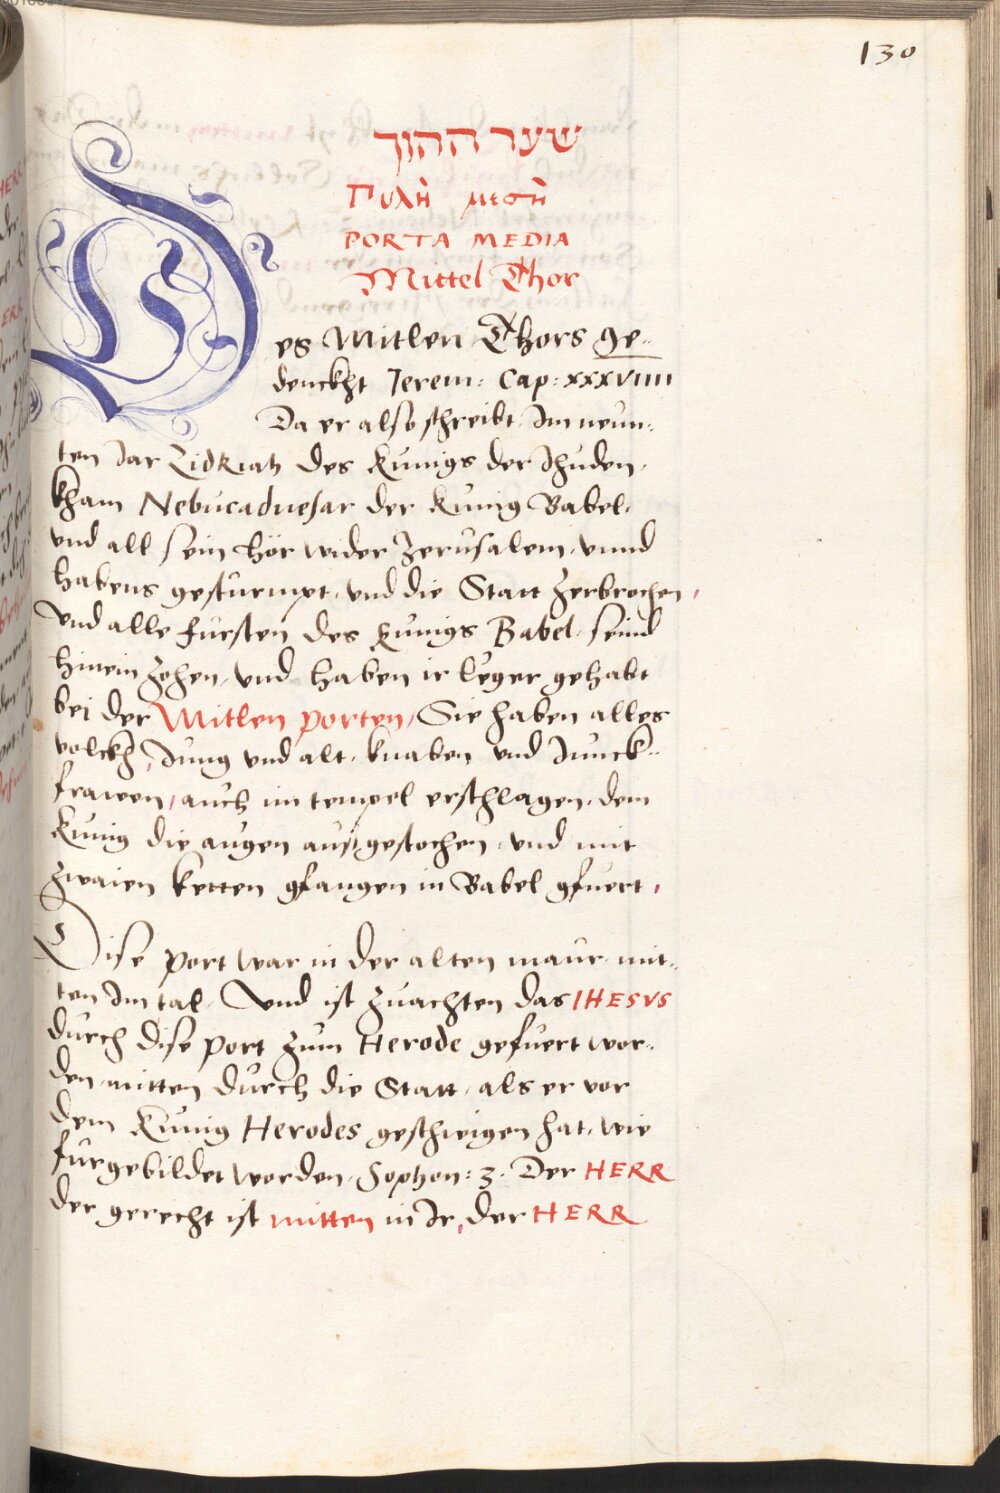 130
שער ההוך
Πυλὴ μεσὴ
PORTA MEDIA
Mittel Thor
Des Mitlen Thors ge-
denckht Jerem: Cap: xxxviiii
Da er also schreibt, Im neun-
ten Jar Zidkiah des Kunigs der Jhuden,
kham Nebucadnesar der Kunig Babel,
vnd all sein hör wider Jerusalem, vnnd
habens gesturmpt, vnd die Statt zerbrochen,
Vnd alle fürsten des Kunigs Babel, seind
hinein zohen, vnd haben ir leger gehabt
bei der Mitlen porten, Sie haben alles
volckh, Jung vnd alt, knaben vnd Junck-
frawen, auch im tempel erschlagen, dem
Kunig die augen außgestochen, vnd mit
zwaien ketten gfangen in Babel gfuert,
Dise port war in der alten maur, mit-
ten Im tal, Vnd ist zuachten das IHESVS
durch dise port zum Herode gefuert wor-
den, mitten durch die Statt, als er vor
dem Kunig Herodes geschwigen hat, wie
furgebildet worden, Sophon: 3. Der HERR
der gerecht ist mitten in Ir, der HERR